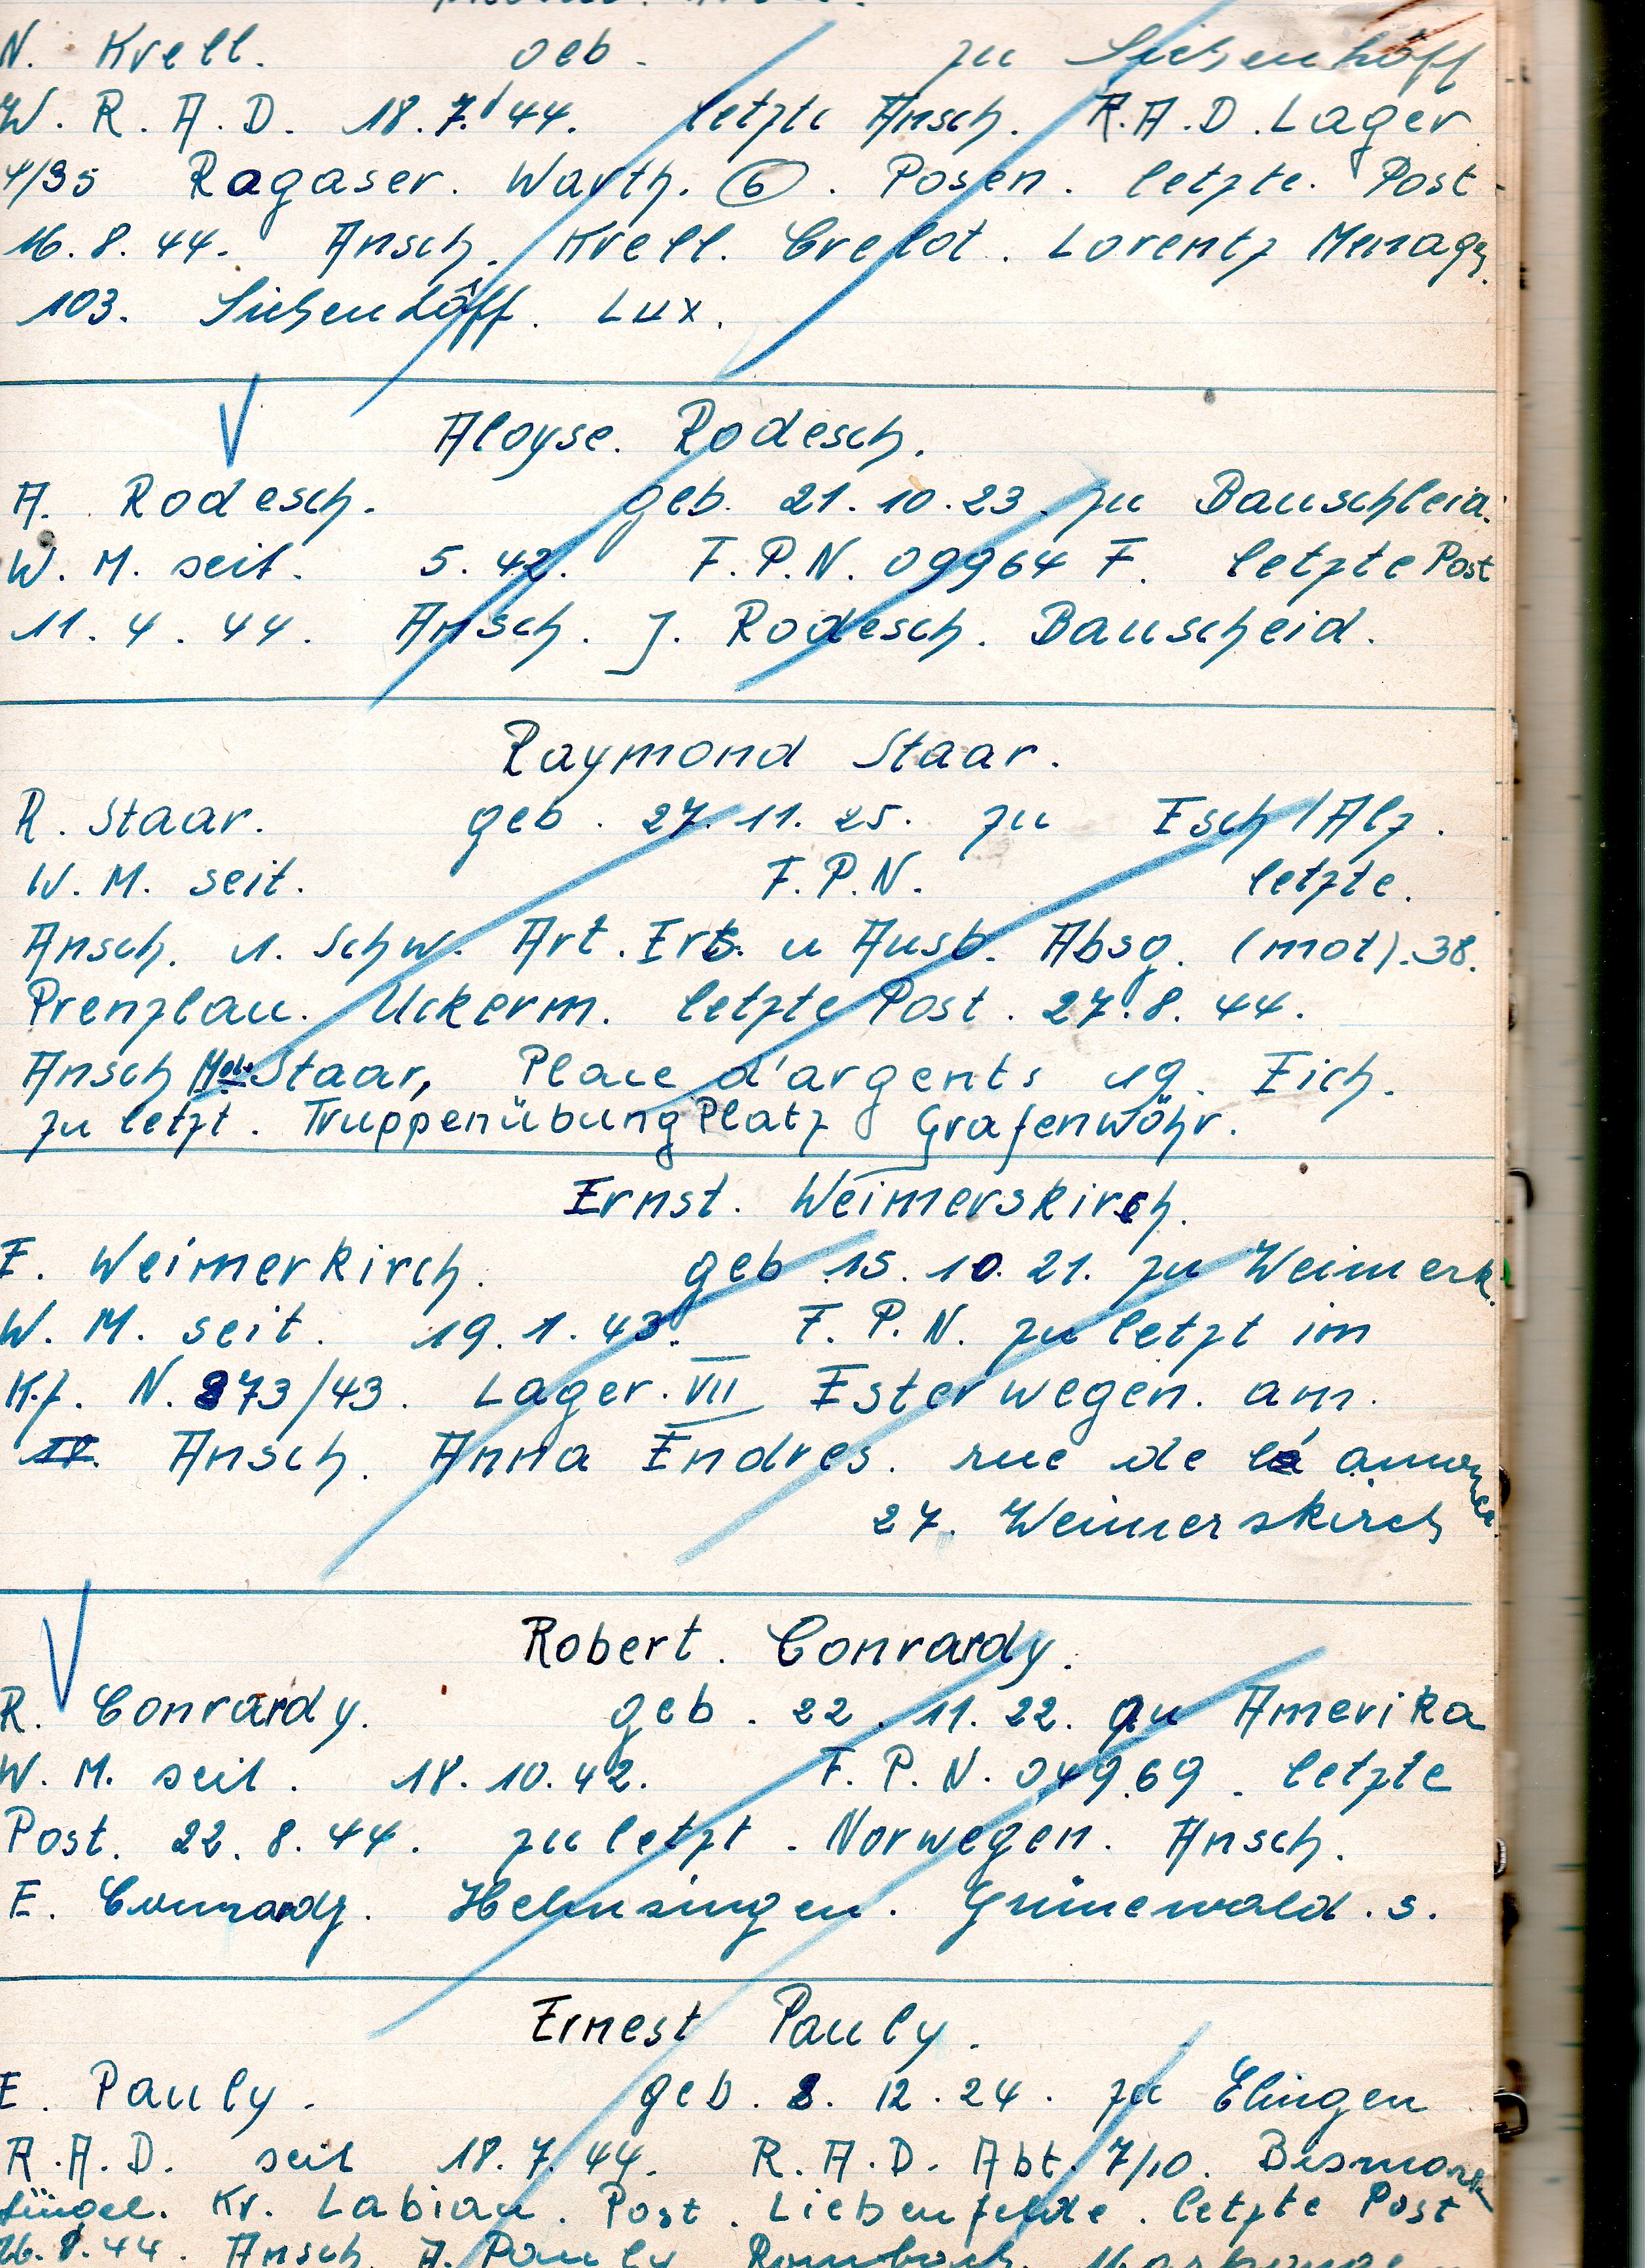 N. Krell. geb. zu Siebenhöff
W. R. A. D. 18. 7. 44. letzte Ansch. R.A.D. Lager
4/35 Ragaser. Warth. (6). Posen. letzte. Post.
16. 8. 44. Ansch. Krell. Crelot. Lorentz
103. Siebenhöff. Lux.
Aloyse. Rodesch.
A. Rodesch. geb. 21. 10. 23. zu Bauschleid.
W. M. seit. 5. 42. F. P. N. 09964 F. letzte Post
11. 4. 44. Ansch. J. Rodesch. Bauscheid.
Raymond Staar.
R. Staar. geb. 27. 11. 25. zu Esch/Alz.
W. M. seit. F. P. N. letzte.
Ansch. 1. Schw. Art. Ers. u Ausb. Absg. (mot). 38.
Prenzlau. Uckerm. letzte Post. 27. 8. 44.
Ansch Staar, Place d'argents 19. Eich.
zu letzt. TruppenübungPlatz Grafenwöhr.
Ernst. Weimerskirch.
E. Weimerkirch. geb 15. 10. 21. zu Weimerk.
W. M. seit. 19. 1. 43. F. P. N. zu letzt im
K.Z. N. 873/43. Lager. VII Esterwegen. am.
Ansch. Anna Endres. rue de
27. Weimerskirch
Robert. Conrardy.
R. Conrardy. geb. 22. 11. 22. zu Amerika
W. M. seit. 18. 10. 42. F. P. N. 04969. letzte
Post. 22. 8. 44. zu letzt. Norwegen. Ansch.
E. Conrardy. Helmsingen. Grünewald. s.
Ernest Pauly.
E. Pauly. geb. 8. 12. 24. zu Elingen
R. A. D. seit 18. 7. 44. R. A. D. Abt. 7/10. Bismark
Kr. Labiau. Post. Liebenfelde. letzte Post
16. 8. 44. Ansch. A. Pauly